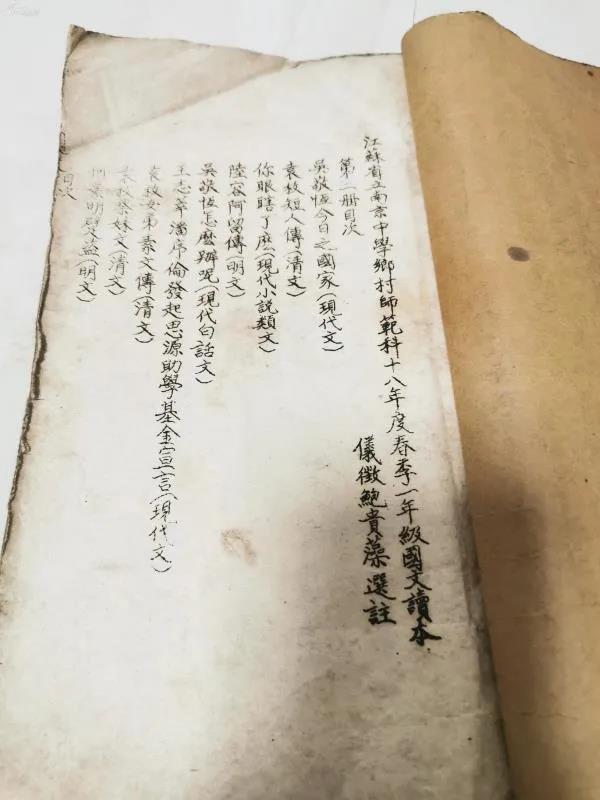 江蘇省立南京中學鄉村師範科十八年度春季一年級國文讀本
儀徵鮑貴藻選註
第二册目次
吳敬恆今日之國家(現代文)
袁枚短人傳(清文)
你眼瞎了麽(現代小説類文)
陸容阿留傳(明文)
吳敬恆怎麽辦呢(現代白話文)
王志莘潘序倫發起思源助學基金宣言(現代文)
袁枚女弟素文傳(清文)
袁枚祭妹文(清文)
何景明躄盗(明文)
目次